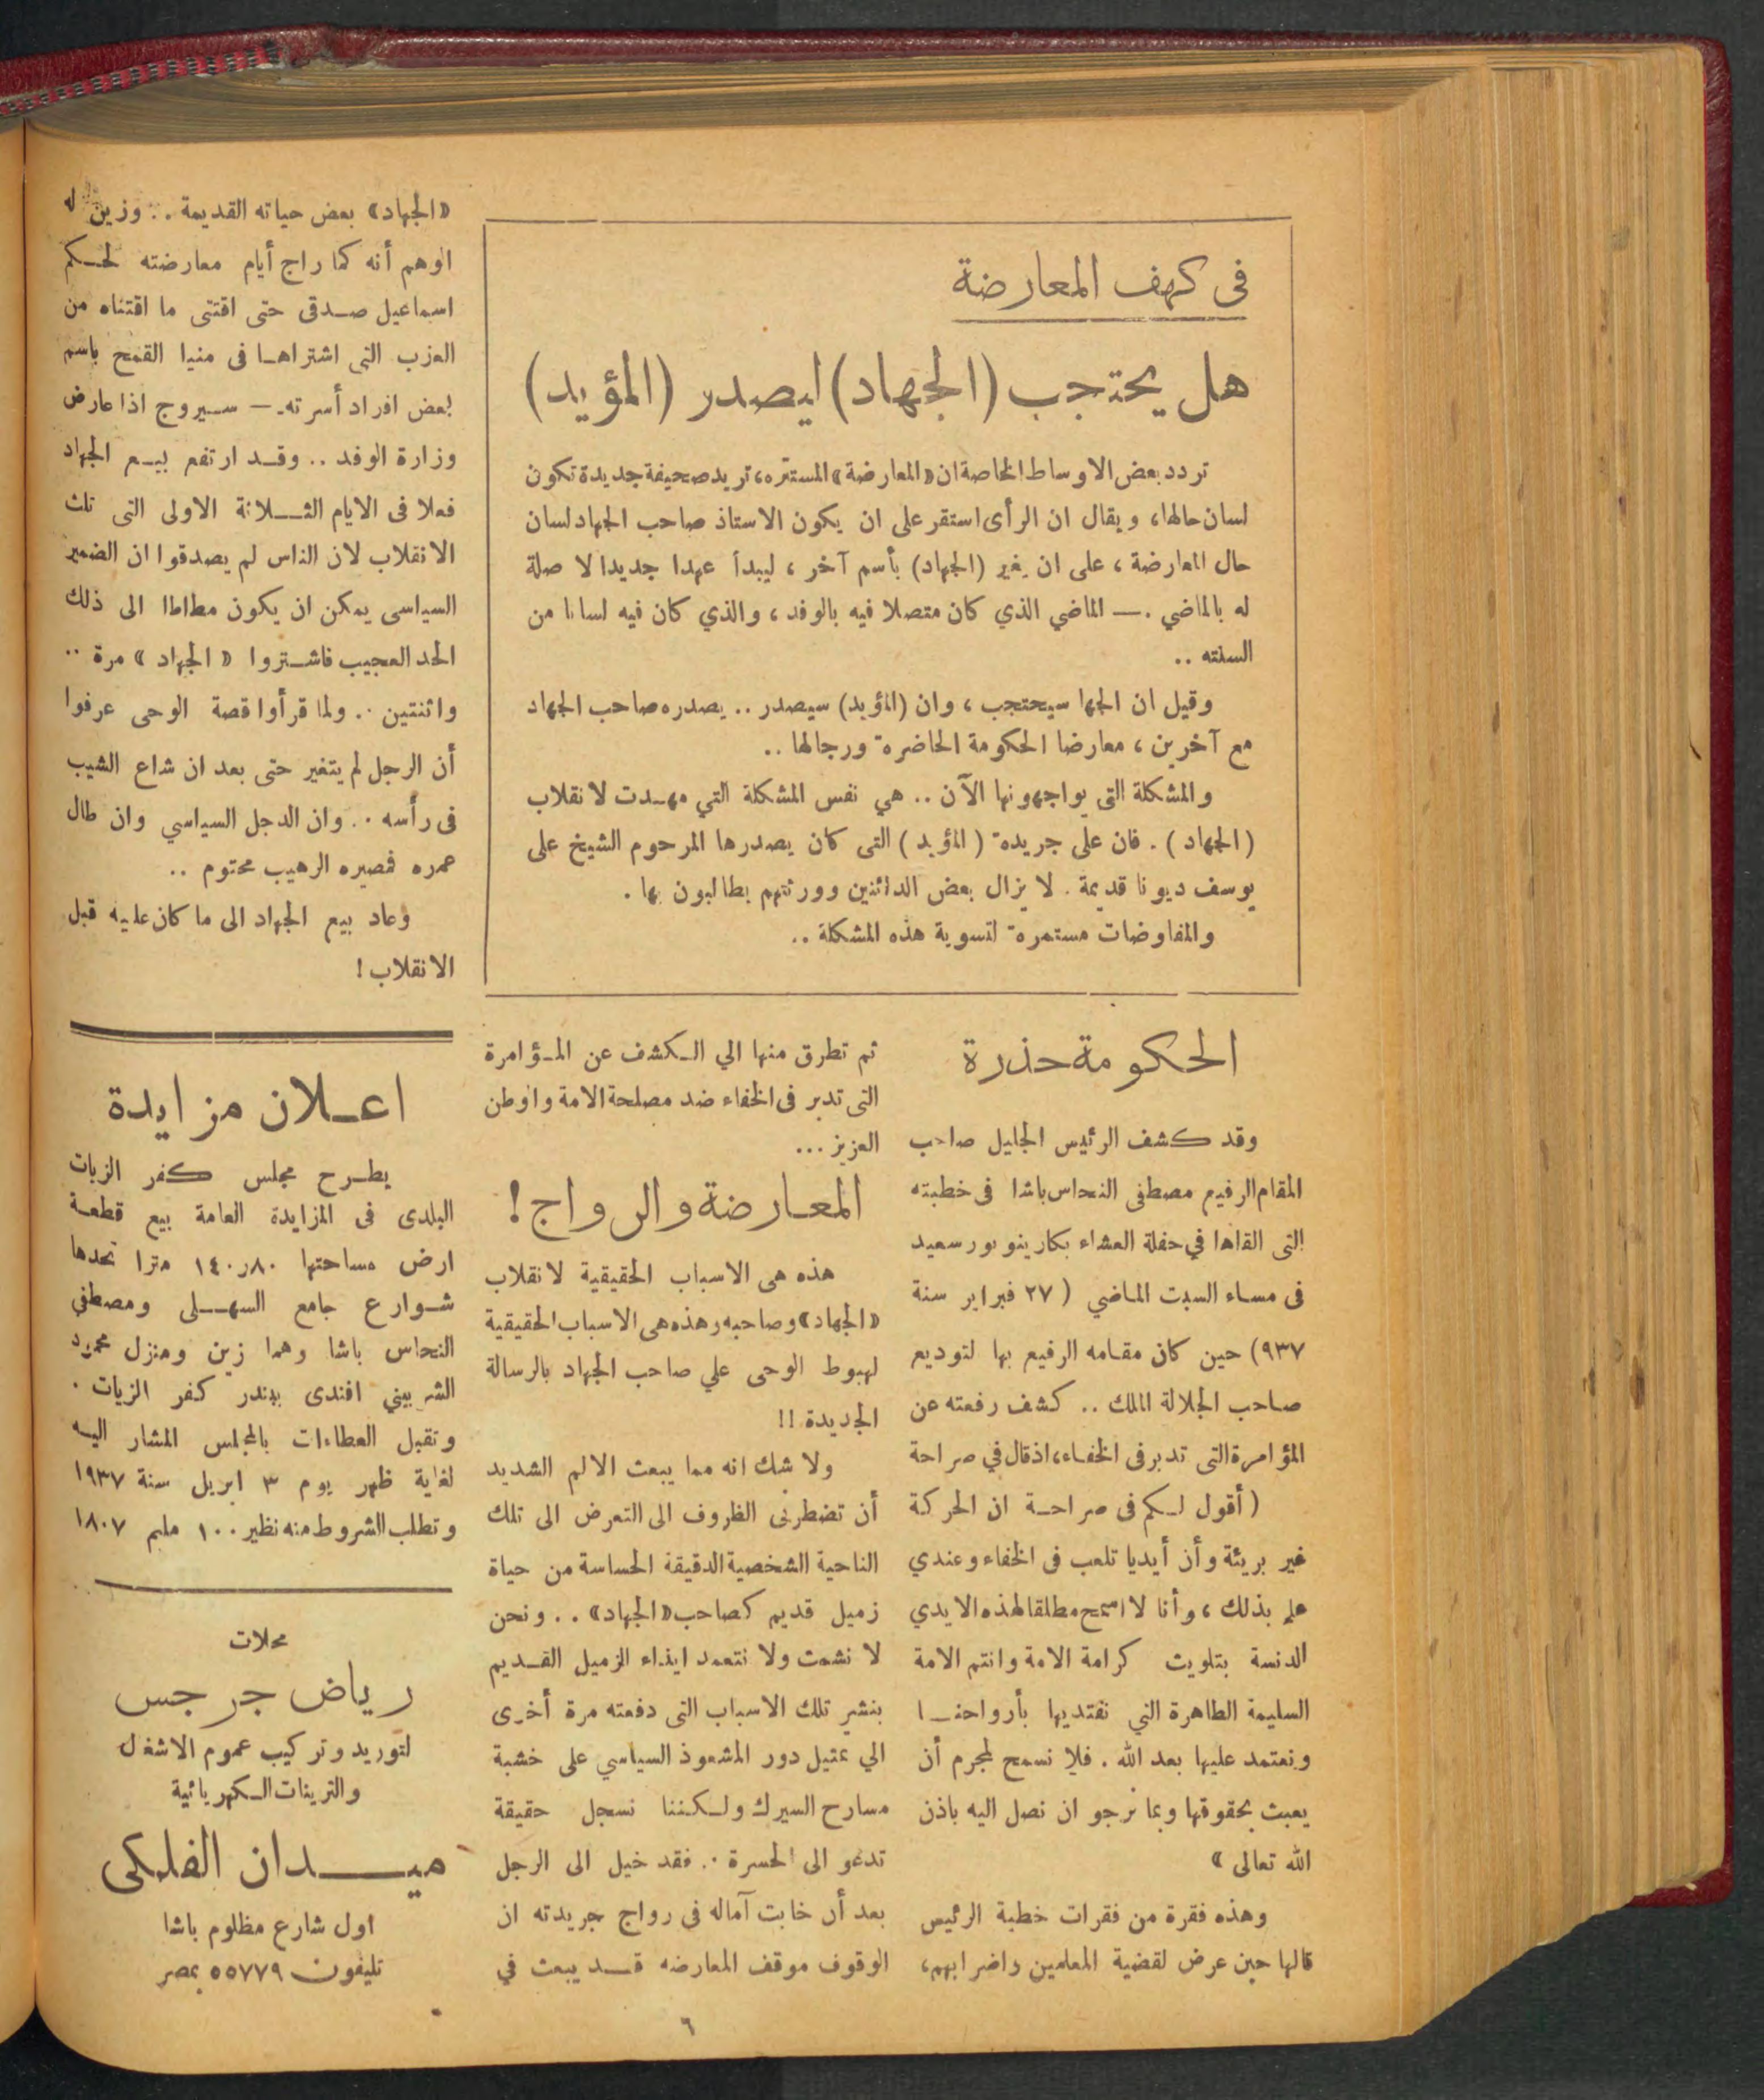 فى كهف المعارضة
هل يحتجب (الجهاد) ليصدر (المؤيد)
تردد بعض الاوساط الخاصة ان «المعارضة» المستتره، تريد صحيفة جديدة تكون
لسان حالها، ويقال ان الرأى استقر على ان يكون الاستاذ صاحب الجهاد لسان
حال المعارضة، على ان يغير (الجهاد) بأسم آخر، ليبدأ عهدا جديدا لا صلة
له بالماضي. — الماضي الذي كان متصلا فيه بالوفد، والذي كان فيه لسانا من
السنته ..
وقيل ان الجها سيحتجب، وان (المؤيد) سيصدر .. يصدره صاحب الجهاد
مع آخرين، معارضا الحكومة الحاضرة ورجالها ..
والمشكلة التى يواجهونها الآن .. هي نفس المشكلة التي مهدت لانقلاب
(الجهاد). فان على جريدة (المؤيد) التى كان يصدرها المرحوم الشيخ على
يوسف ديونا قديمة. لا يزال بعض الدائنين وورثتهم يطالبون بها.
والمفاوضات مستمرة لتسوية هذه المشكلة ..
الحكومة حذرة
وقد كشف الرئيس الجليل صاحب
المقام الرفيع مصطفى النحاس باشا فى خطبته
التى القاها في حفلة العشاء بكازينو بورسعيد
فى مساء السبت الماضي ( ٢٧ فبراير سنة
٩٣٧) حين كان مقامه الرفيع بها لتوديع
صاحب الجلالة الملك .. كشف رفعته عن
المؤامرة التى تدبر فى الخفاء، اذ قال في صراحة
( أقول لكم فى صراحة ان الحركة
غير بريئة وأن أيديا تلعب فى الخفاء وعندي
علم بذلك، وأنا لا اسمح مطلقا لهذه الايدي
الدنسة بتلويث كرامة الامة وانتم الامة
السليمة الطاهرة التي نفتديها بأرواحنا
ونعتمد عليها بعد الله. فلا نسمح لمجرم أن
يعبث بحقوقها وبما نرجو ان نصل اليه باذن
الله تعالى »
وهذه فقرة من فقرات خطبة الرئيس
قالها حين عرض لقضية المعلمين واضرابهم،
ثم تطرق منها الي الكشف عن المؤامرة
التى تدبر فى الخفاء ضد مصلحة الامة والوطن
العزيز ...
المعارضة والرواج !
هذه هى الاسباب الحقيقية لانقلاب
«الجهاد» وصاحبه وهذه هى الاسباب الحقيقية
لهبوط الوحى علي صاحب الجهاد بالرسالة
الجديدة !!
ولا شك انه مما يبعث الالم الشديد
أن تضطرنى الظروف الى التعرض الى تلك
الناحية الشخصية الدقيقة الحساسة من حياة
زميل قديم كصاحب «الجهاد» .. ونحن
لا نشمت ولا نتعمد ايذاء الزميل القديم
بنشر تلك الاسباب التى دفعته مرة أخرى
الي تمثيل دور المشعوذ السياسي على خشبة
مسارح السيرك ولكننا نسجل حقيقة
تدعو الى الحسرة .. فقد خيل الى الرجل
بعد أن خابت آماله فى رواج جريدته ان
الوقوف موقف المعارضه قد يبعث في
«الجهاد» بعض حياته القديمة .. وزين له
الوهم أنه كما راج أيام معارضته لحكم
اسماعيل صدقى حتى اقتنى ما اقتناه من
العزب التى اشتراها فى منيا القمح باسم
بعض افراد أسرته — سيروج اذا عارض
وزارة الوفد .. وقد ارتفع بيع الجهاد
فعلا فى الايام الثلاثة الاولى التى تلت
الانقلاب لان الناس لم يصدقوا ان الضمير
السياسى يمكن ان يكون مطاطا الى ذلك
الحد العجيب فاشتروا «الجهاد» مرة ..
واثنتين .. ولما قرأوا قصة الوحى عرفوا
أن الرجل لم يتغير حتى بعد ان شاع الشيب
فى رأسه .. وان الدجل السياسي وان طال
عمره فمصيره الرهيب محتوم ..
وعاد بيع الجهاد الى ما كان عليه قبل
الانقلاب !
اعلان مزايدة
يطرح مجلس كفر الزيات
البلدى فى المزايدة العامة بيع قطعة
ارض مساحتها ١٤٠٫٨٠ مترا تحدها
شوارع جامع السهلى ومصطفي
النحاس باشا وهما زين ومنزل محمود
الشربيني افندى ببندر كفر الزيات .
وتقبل العطاءات بالمجلس المشار اليه
لغاية ظهر يوم ٣ ابريل سنة ١٩٣٧
وتطلب الشروط منه نظير ١٠٠ مليم ١٨٠٧
محلات
رياض جرجس
لتوريد وتركيب عموم الاشغال
والترينات الكهربائية
ميدان الفلكى
اول شارع مظلوم باشا
تليفون ٥٥٧٧٩ بمصر
٦